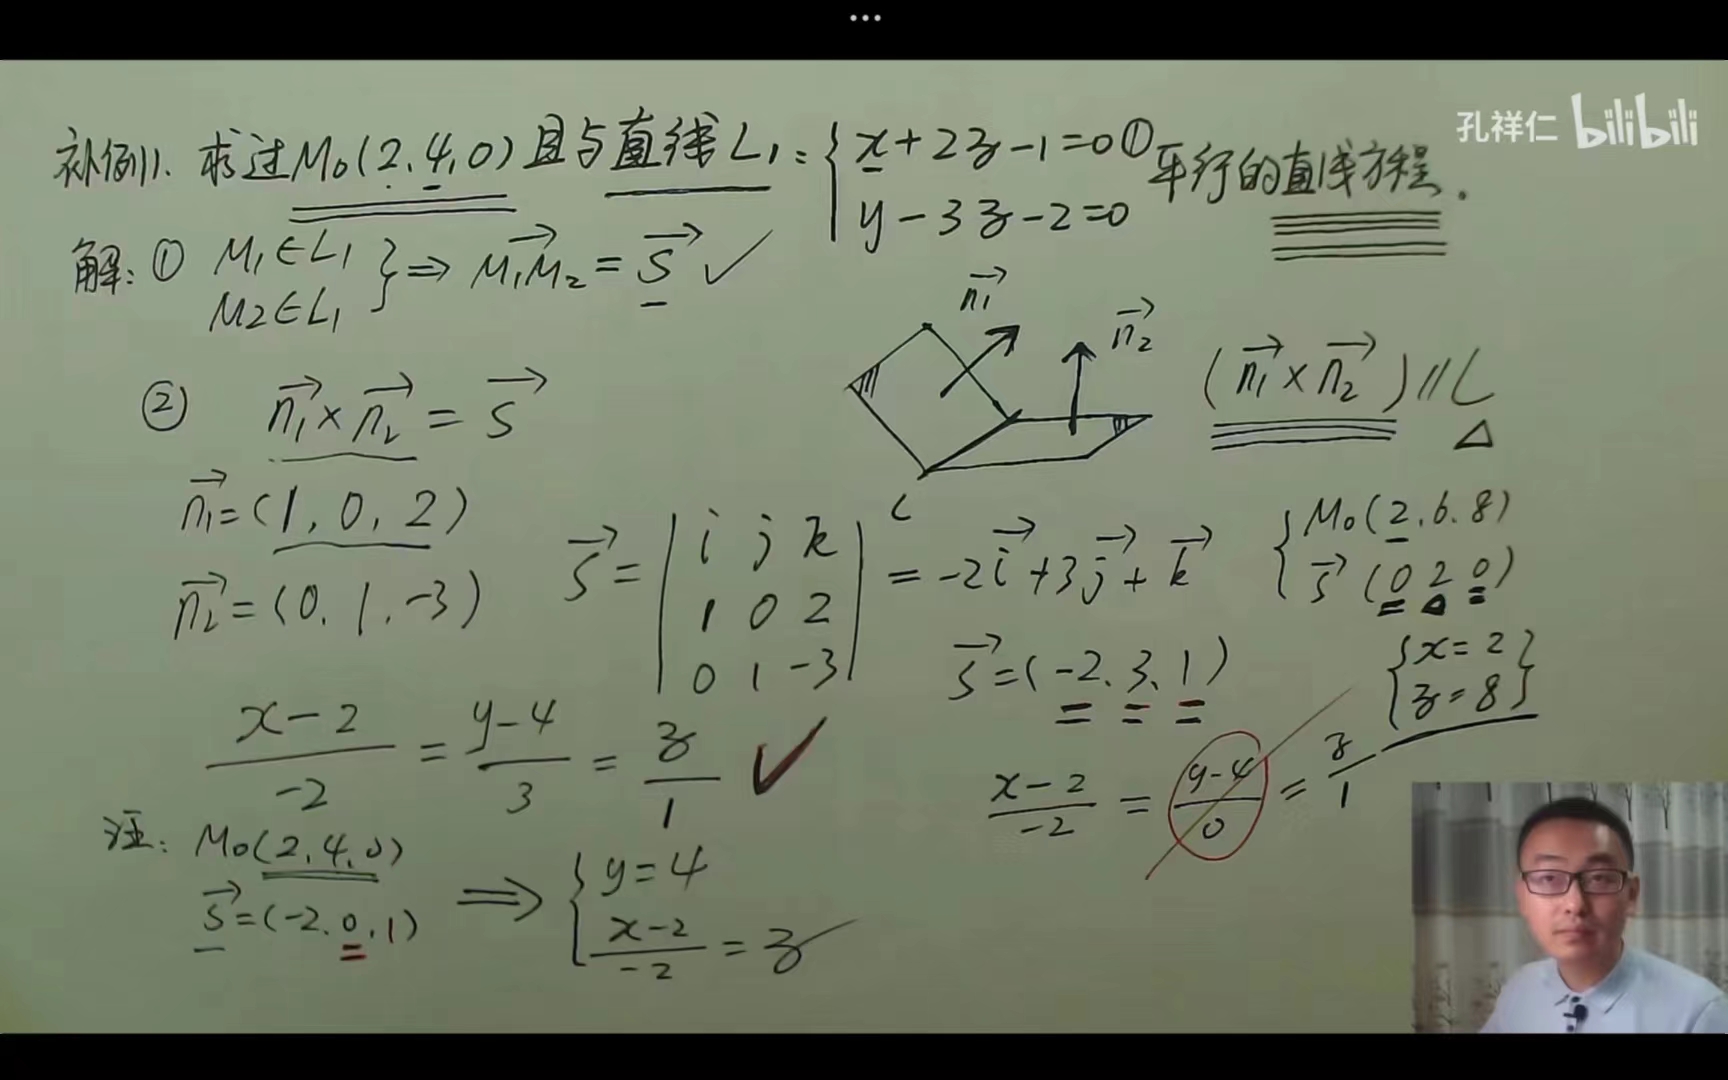 ...
孔祥仁 bilibili
补例1. 求过M₀(2,4,0)且与直线L₁: { x+2z-1=0① 平行的直线方程.
y-3z-2=0
解: ① M₁∈L₁
M₂∈L₁ } ⇒ M₁M₂→ = s→ ✓
n₁→
n₂→
(n₁→×n₂→)//L
△
② n₁→×n₂→ = s→
n₁→=(1,0,2)
n₂→=(0,1,-3)
L
s→ = | i j k |
| 1 0 2 |
| 0 1 -3 |
= -2i→+3j→+k→
s→=(-2,3,1)
{ M₀(2,6,8)
s→ (0 2 0)
{ x=2
z=8 }
(x-2)/-2 = (y-4)/3 = z/1 ✓
(x-2)/-2 = (y-4)/0 = z/1
注: M₀(2,4,0)
s→=(-2,0,1)
⇒ { y=4
(x-2)/-2 = z